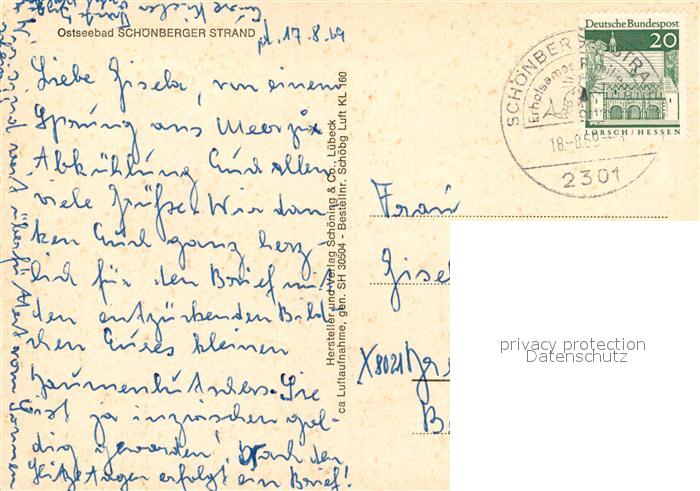 Ostseebad SCHÖNBERGER STRAND
d. 17.8.69
Liebe Gisela, von einem
Sprung ans Meer zur
Abkühlung Euch allen
viele Grüße. Wir dan
ken Euch ganz herz-
lich für den Brief mit
den entzückenden Bild-
chen Eures kleinen
Sie
ist ja inzwischen gol-
dig geworden! Nach den
Hitzetagen erfolgt ein Brief!
Hersteller und Verlag Schöning & Co., Lübeck
ca Luftaufnahme, gen. SH 30504 - Bestellnr. Schöbg Luft KL 160
Deutsche Bundespost
20
LORSCH/HESSEN
SCHÖNBERG
STRA
Erholsames
18-8.69
2301
Frau
Gisel
X8021
privacy protection
Datenschutz